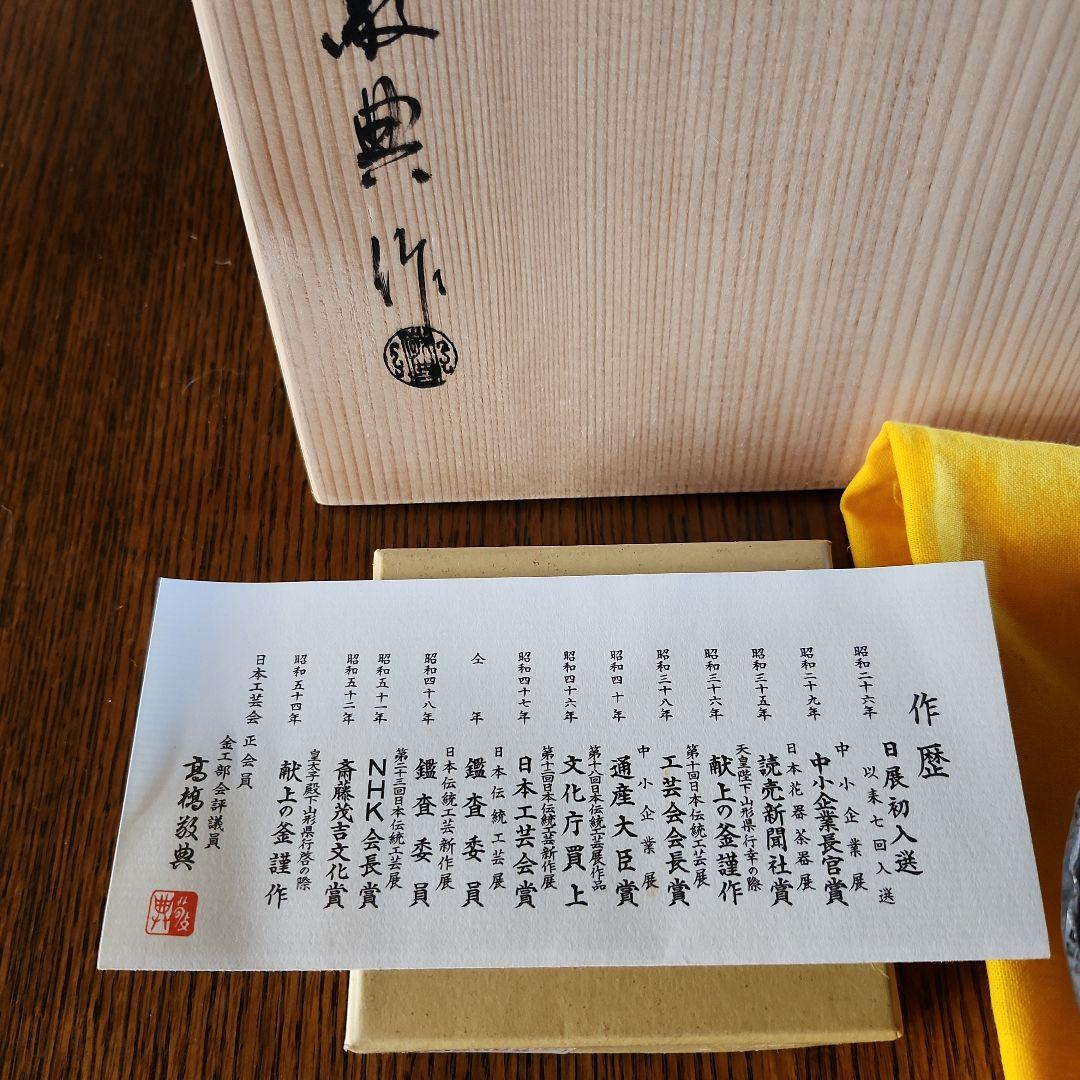 敬典
作
作歴
昭和二十六年
日展初入選
以来七回入選
昭和二十九年
中小企業展
中小企業長官賞
昭和三十五年
日本花器茶器展
読売新聞社賞
昭和三十六年
天皇陛下山形県行幸の際
献上の釜謹作
昭和三十八年
第十回日本伝統工芸展
工芸会会長賞
昭和四十年
中小企業展
通産大臣賞
昭和四十六年
第十八回日本伝統工芸展作品
文化庁買上
昭和四十七年
第十二回日本伝統工芸新作展
日本工芸会賞
仝年
日本伝統工芸展
鑑査委員
昭和四十八年
日本伝統工芸新作展
鑑査委員
昭和五十一年
第二十三回日本伝統工芸展
NHK会長賞
昭和五十二年
斎藤茂吉文化賞
昭和五十四年
皇太子殿下山形県行啓の際
献上の釜謹作
日本工芸会正会員
金工部会評議員
高橋敬典
敬典